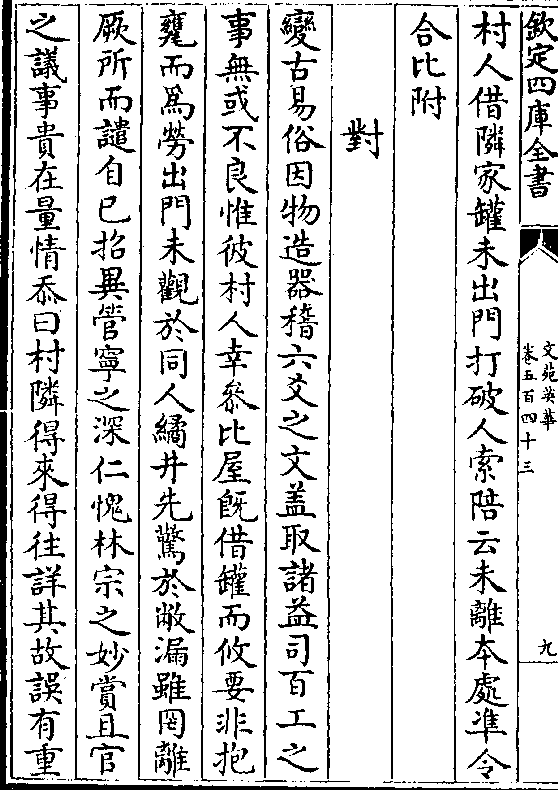 欽定四庫全書
文苑英華
卷五百四十三
九
村人借隣家罐未出門打破人索陪云未離本處準令
合比附
對
變古易俗因物造器稽六爻之文盖取諸益司百工之
事無或不良惟彼村人幸叅比屋旣借罐而攸要非抱
甕而爲勞出門未觀於同人繘井先驚於敝漏雖罔離
厥所而譴自已招異管寧之深仁愧林宗之妙賞且官
之議事貴在量情忝曰村隣得來得往詳其故誤有重